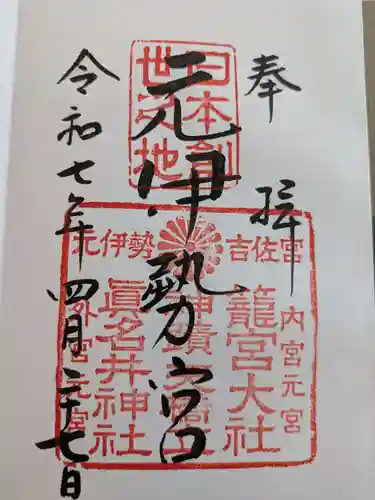 奉拝
元伊勢宮
令和七年四月二十七日
日本創
世之地
元伊勢
吉佐宮
内宮元宮
籠宮大社
眞名井神社
外宮元宮